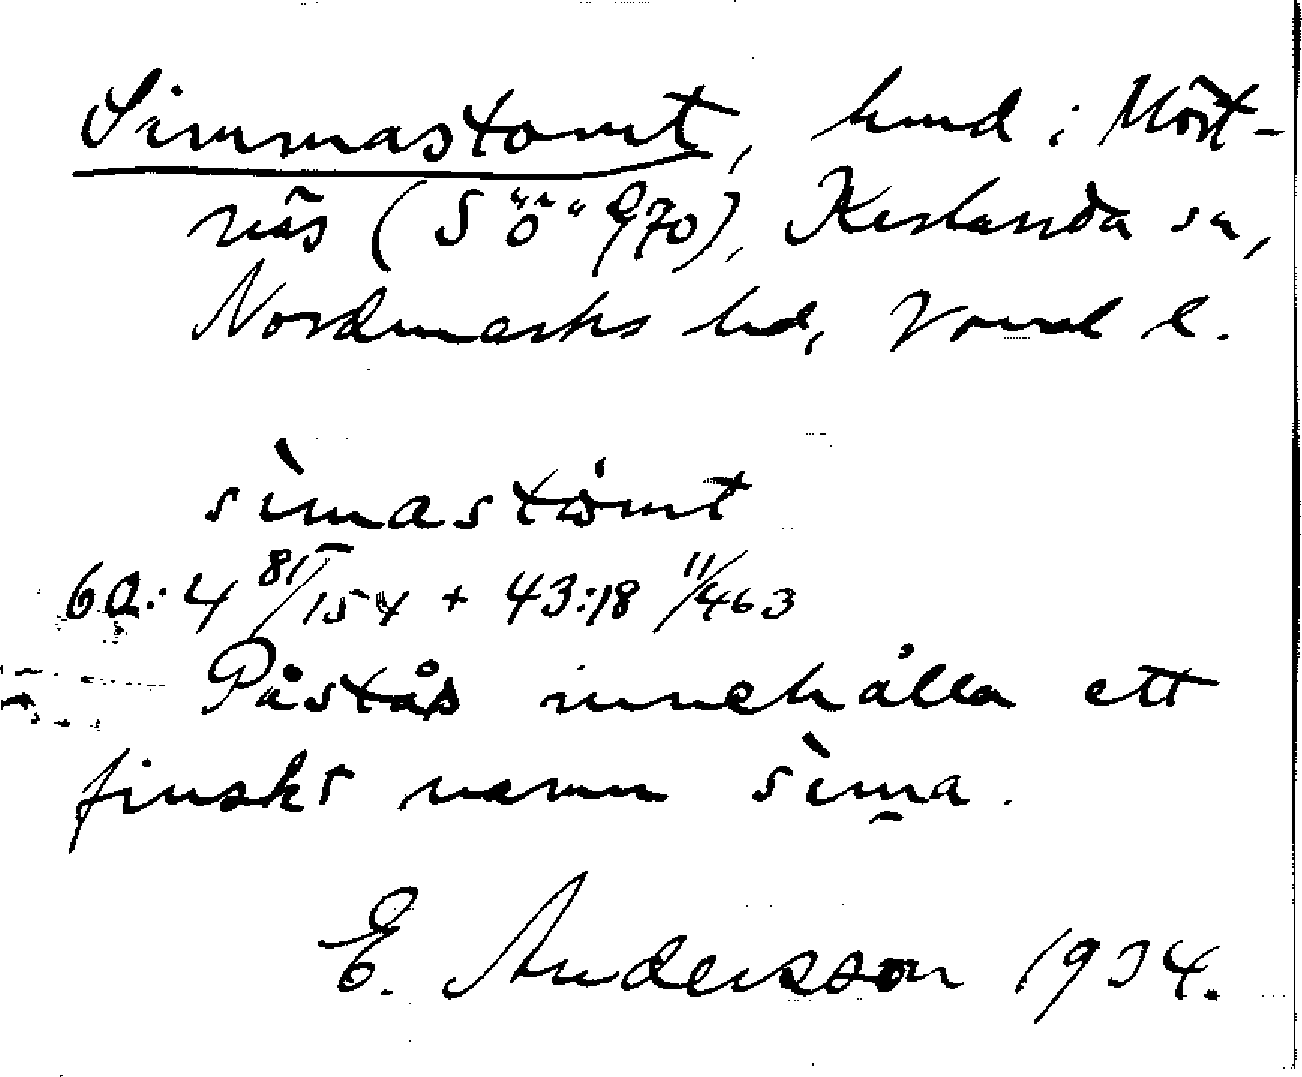 Simmastomt, hmd i Mört-
näs (S "ö" 970), Karlanda sn,
Nordmarks hd, Vrml l.
sìmastòmt
60:4 81/154 + 43:18 11/463
Påstås innehålla ett
finskt namn sìma.
E. Andersson 1934.